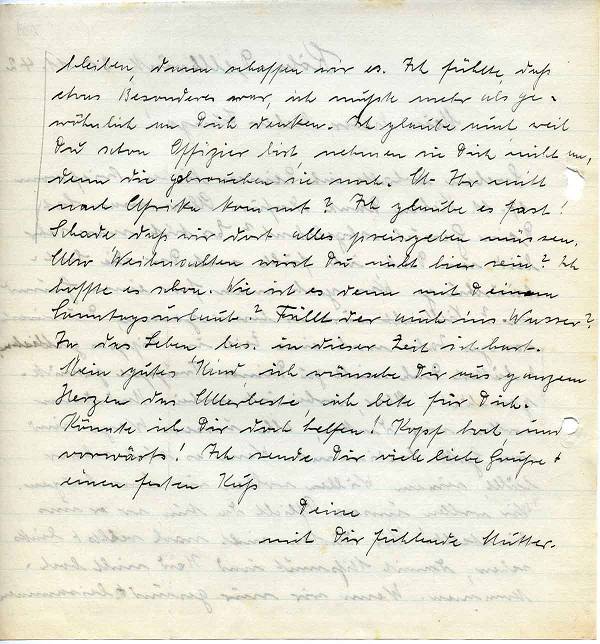 bleiben, dann schaffen wir es. Ich fühlte, daß
etwas Besonderes war, ich mußte mehr als ge-
wöhnlich an Dich denken. Ich glaube nicht, weil
Du schon Offizier bist, nehmen sie Dich nicht an,
denn die gebrauchen sie noch. Ihr nicht
nach Afrika kommt? Ich glaube es fast!
Schade daß wir dort alles preisgeben müssen.
Also Weihnachten wirst Du nicht hier sein? Ich
hoffte es schon. Wie ist es denn mit Deinem
Sonntagsurlaub? Fällt der auch ins Wasser?
Ja das Leben bes. in dieser Zeit ist hart.
Mein gutes Kind, ich wünsche Dir aus ganzem
Herzen das Allerbeste, ich bete für Dich.
Könnte ich Dir doch helfen! Kopf hoch, und
vorwärts! Ich sende Dir viele liebe Grüße +
einen festen Kuß
Deine
mit Dir fühlende Mutter.